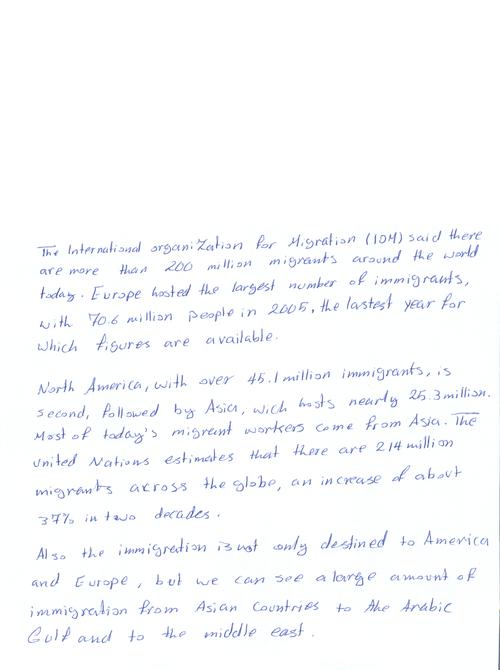 The International organiZation for Migration (IOM) said there
are more than 200 million migrants around the world
today. Europe hosted the largest number of immigrants,
with 70.6 million people in 2005, the lastest year for
which figures are available.
North America, with over 45.1 million immigrants, is
second, followed by Asia, wich hosts nearly 25.3 million.
Most of today's migrant workers come from Asia. The
United Nations estimates that there are 214 million
migrants across the globe, an increase of about
37% in two decades.
Also the immigration is not only destined to America
and Europe, but we can see a large amount of
immigration from Asian Countries to the Arabic
Gulf and to the middle east.